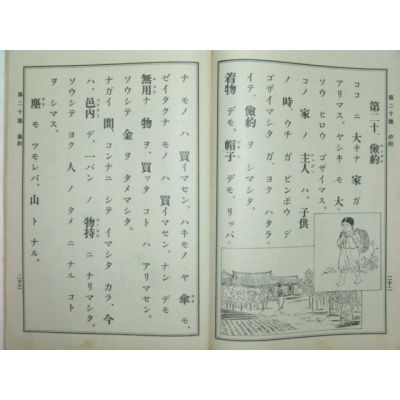 第二十、儉約
ココ ニ 大キナ 家 ガ
アリマス。ヤシキ モ 大
ソウ ヒロウ ゴザイマス。
コノ 家 ノ 主人 ハ、子供
ノ 時、ウチ ガ ビンボウ デ
ゴザイマシタ ガ、ヨク ハタラ
イテ、儉約 ヲ シマシタ。
着物 デモ、帽子 デモ、リッパ
二十二
ナ モノ ハ 買イマセン。ハキモノ ヤ 傘 モ、
ゼイタクナ モノ ハ 買イマセン。ナン デモ
無用ナ 物 ヲ 買ッタ コト ハ アリマセン。
ソウシテ 金 ヲ タメマシタ。
ナガイ 間、コンナニ シテ イマシタ カラ、今
ハ、邑内 デ、一バン ノ 物持 ニ ナリマシタ。
ソウシテ ヨク 人 ノ タメ ニ ナル コト
ヲ シマス。
塵 モ ツモレバ、山 ト ナル。
第二十課 儉約
二十三